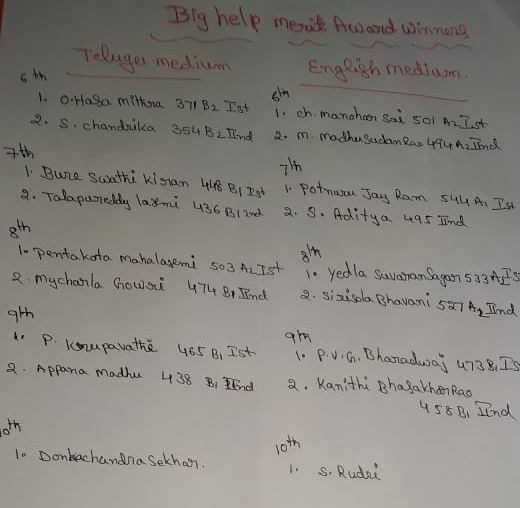 Big help merit Award winners
Telugu medium
6th
1. O.Hasa mithra 371 B2 Ist
2. S. chandrika 354 B2 IInd
7th
1. Bure Swathi kiran 448 B1 Ist
2. Talapureddy laxmi 436 B1 2nd
8th
1. pentakota mahalaxmi 503 A2 Ist
2. mycharla Gowri 474 B1 IInd
9th
1. P. Korupavathi 465 B1 Ist
2. Appana madhu 438 B1 IInd
10th
1. Donkachandra Sekhar.
English medium.
6th
1. ch. manohar Sai 501 A2 Ist
2. m. madhuSudan Rao 494 A2 IInd
7th
1. Potnuru Jay Ram 544 A1 Ist
2. S. Aditya 495 IInd
8th
1. yedla SuvaranSagar 533 A2 Is
2. Sirisala Bhavani 527 A2 IInd
9th
1. P.V.G. Bharadwaj 473 B1 Is
2. Kanithi BhasakharRao
458 B1 IInd
10th
1. S. Rudri